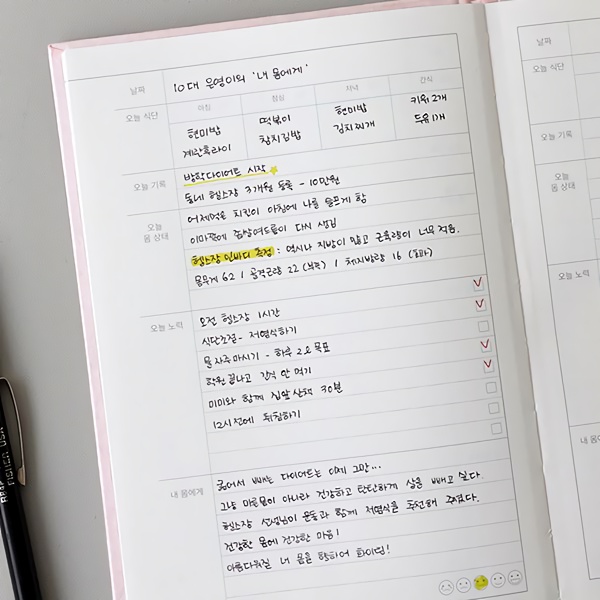 날짜 10대 은영이의 '내 몸에게'
오늘 식단 아침 점심 저녁 간식
현미밥 떡볶이 현미밥 키위 2개
계란후라이 참치김밥 김치찌개 두유 1개
오늘 기록 방학다이어트 시작
동네 헬스장 3개월 등록 - 10만원
오늘 몸 상태 어제먹은 치킨이 아침에 나를 슬프게 함
이마쪽에 좁쌀여드름이 다시 생김
헬스장 인바디 측정 : 역시나 지방이 많고 근육량이 너무 적음.
몸무게 62 / 골격근량 22 (부족) / 체지방량 16 (초과)
오늘 노력 오전 헬스장 1시간
식단조절 - 저염식하기
물 자주마시기 - 하루 2L 목표
학원 끝나고 간식 안 먹기
미미와 함께 집앞 산책 30분
12시전에 취침하기
내 몸에게 굶어서 빼는 다이어트는 이제 그만...
그냥 마른몸이 아니라 건강하고 탄탄하게 살을 빼고 싶다.
헬스장 선생님이 운동과 함께 저염식을 추천해 주셨다.
건강한 몸에 건강한 마음!
아름다워질 내 몸을 향하여 화이팅!
날짜
오늘 식단
오늘 기록
오늘 몸 상태
오늘 노력
내 몸에게
FISHER USA